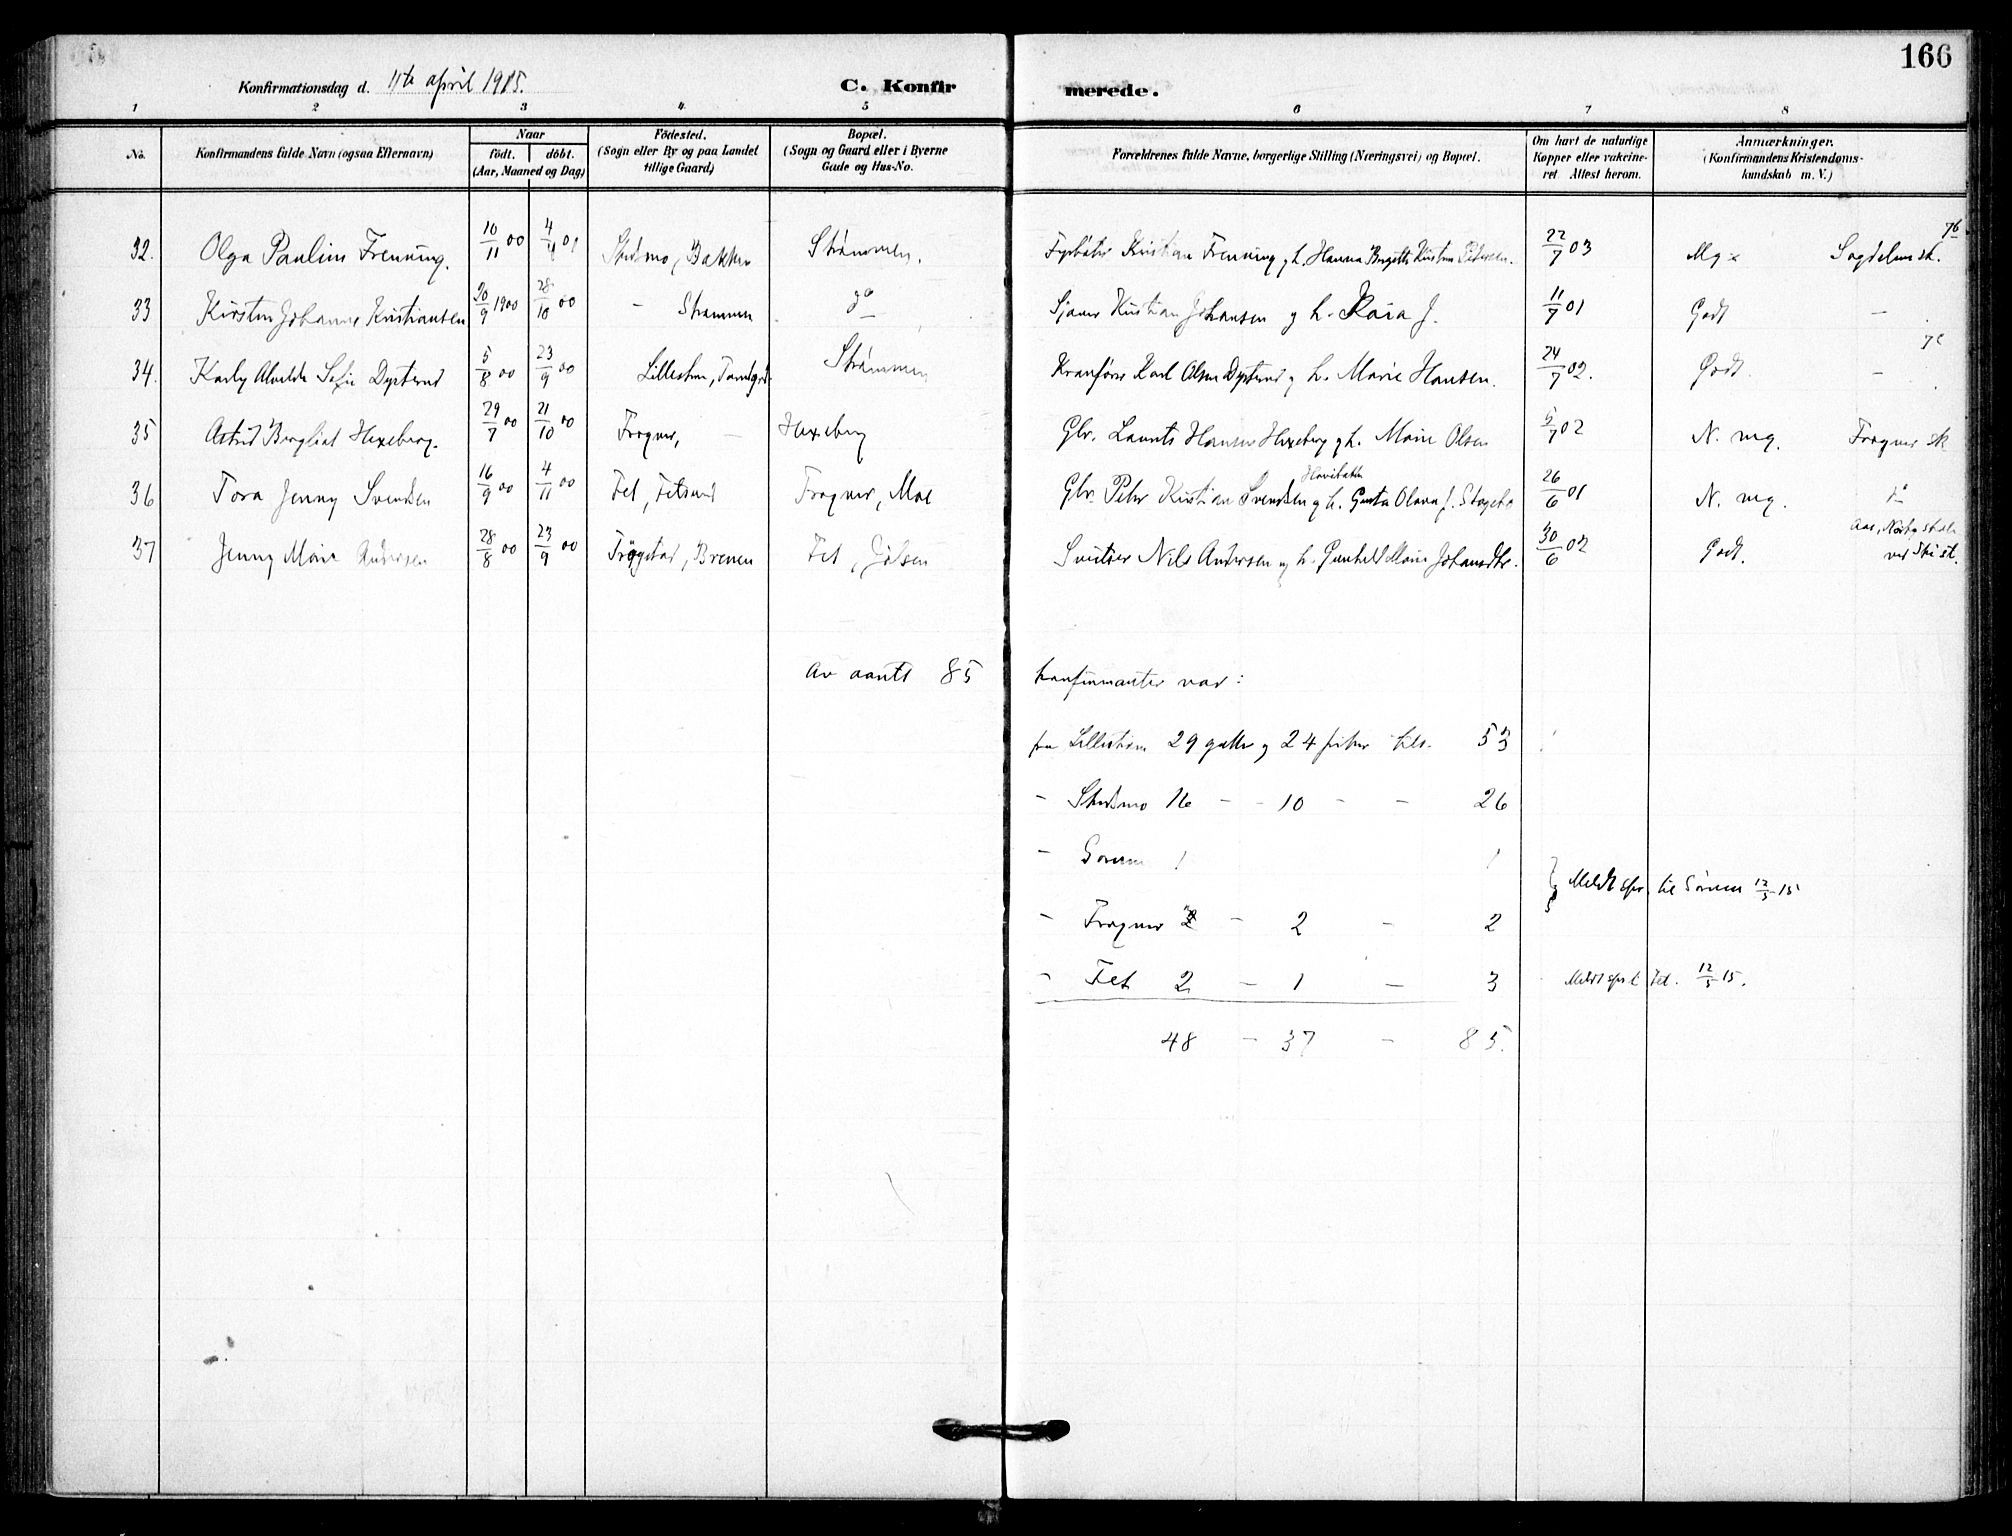 166
Konfirmationsdag d. 11te april 1915.
C. Konfirmerede.
1 2 3 4 5 6 7 8
No.
Konfirmandens fulde Navn (ogsaa Efternavn)
Naar
födt. döbt.
(Aar, Maaned og Dag)
Födested.
(Sogn eller By og paa Landet
tillige Gaard)
Bopæl.
(Sogn og Gaard eller i Byerne
Gade og Hus-No.
Forældrenes fulde Navne, borgerlige Stilling (Næringsvei) og Bopæl.
Om havt de naturlige
Kopper eller vakcine-
ret Attest herom.
Anmærkninger.
(Konfirmandens Kristendoms-
kundskab m. V.)
7b
32. Olga Pauline Frenning. 10/11 00 4/4 01 Skedsmo, Bakken Strømmen. Fyrbøter Kristian Frenning og h. Hanna Birgitte Kirstine Petersen. 22/7 03 Mg x Sagdalens sk.
33 Kirsten Johanne Kristiansen 20/9 1900 28/10 00 – Strømmen do Kristian Johansen og h. Kaia J. 11/7 01 Godt –
7c
34. Karly Alvilde Sofie Dysterud 5/8 00 23/9 00 Lillestrøm, Strømmen Kranfører Karl Olsen Dysterud og h. Marie Hansen. 24/7 02. Godt. –
35 Astrid Bergliot Hexeberg. 29/7 00 21/10 00 Frogner, – Hexeberg Gbr. Laurits Hansen Hexeberg og h. Marie Olsen 5/7 02 N. mg. Frogner sk
36 Tora Jenny Svendsen 16/9 00 4/11 00 Fet, Fetsund Frogner, Moe Gbr. Peter Kristian Svendsen og h. Gusta Olava J. 26/6 01 N. mg. do
37 Jenny Marie Andersen 28/8 00 23/9 00 Trøgstad, Brenen Fet, Nils Andersen og h. Gunhild Marie Johansdtr. 30/6 02 Godt. Aas, Nordby skole
ved Ski st.
Av aantl 85 konfirmanter var:
fra Lillestrøm 29 gutter og 24 piker tils. 53
– Skedsmo 16 – – 10 – – 26
– Sørum 1 1
Meldt spr. til Sørum 12/5 15
– Frogner – 2 – 2
– Fet 2 – 1 – 3 Meldt spr. t. Fet. 12/5 15.
48 – 37 – 85.